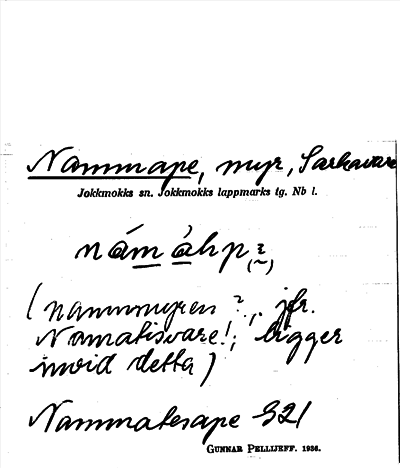 Nammape, myr, Sarkavare
Jokkmokks sn. Jokkmokks lappmarks tg. Nb l.
nám àhp
(nammmyren?, jfr.
Namatisvare!; ligger
invid detta)
Nammatesape S21
GUNNAR PELLIJEFF. 1936.